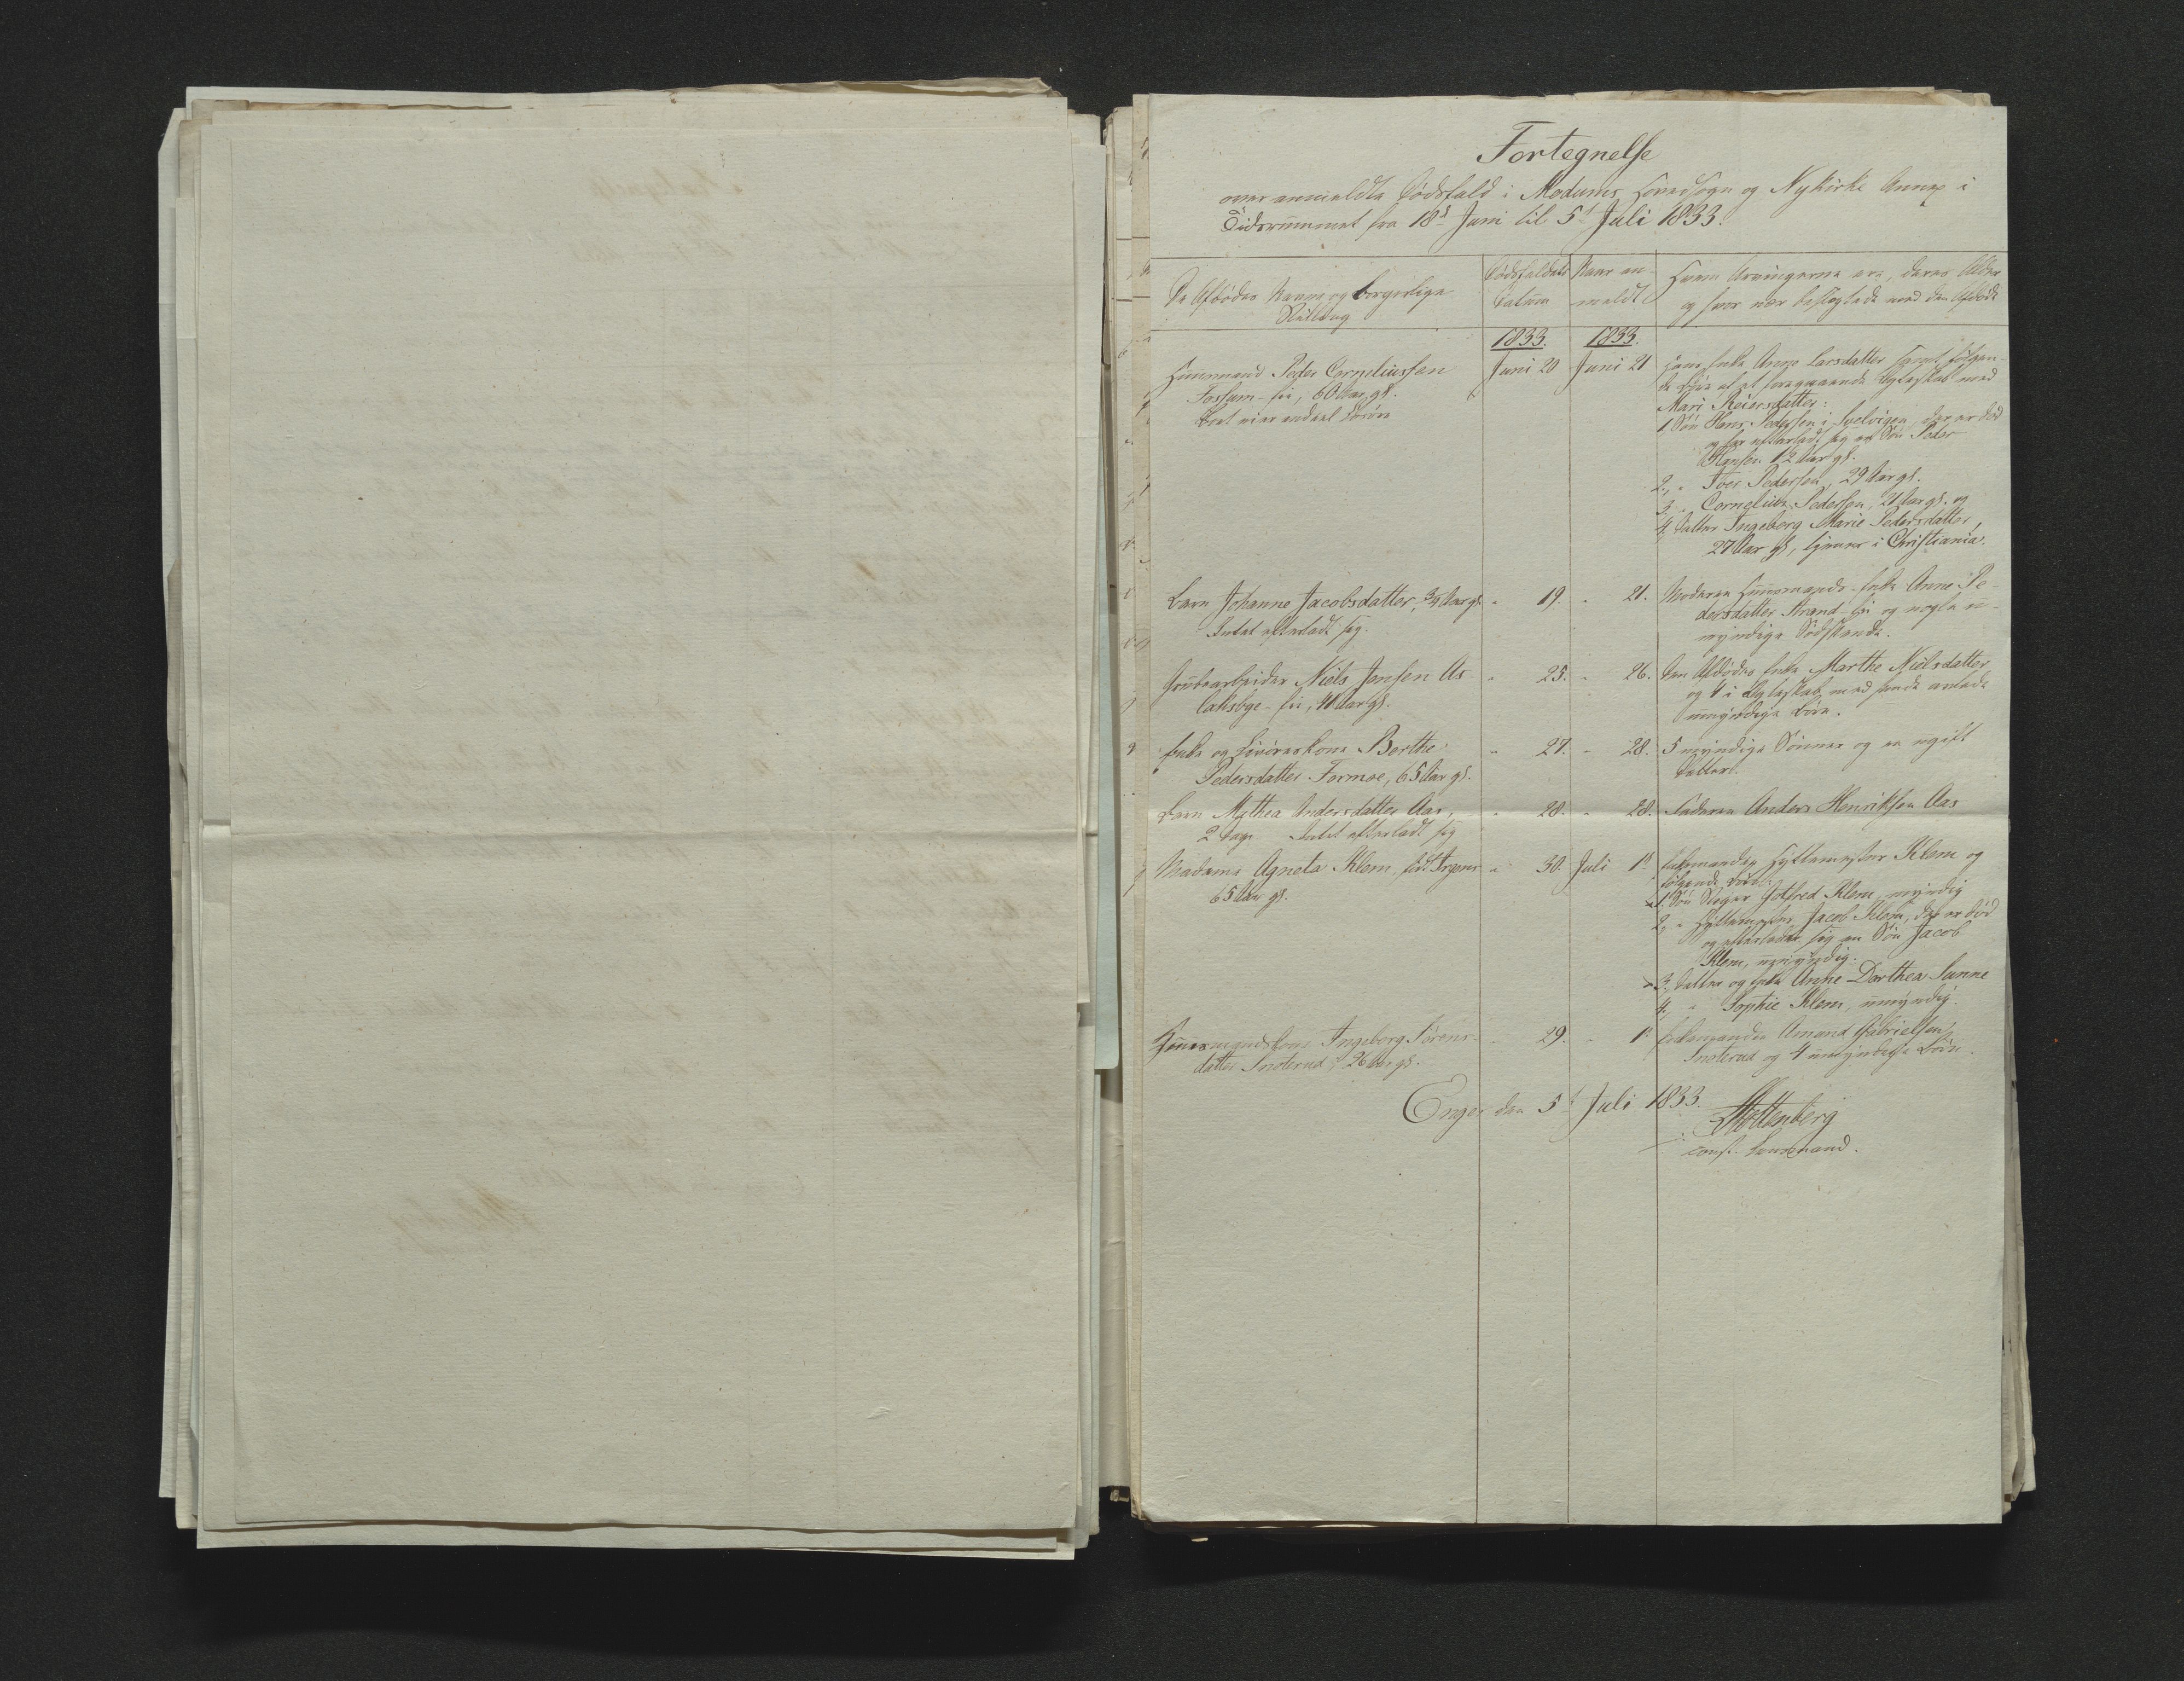 Fortegnelse
over anmeldte Dødsfald i Modums Hovedsogn og Nykirke Annex i
Tidsrummet fra 18d Juni til 5t Juli 1833.
De Afdødes Navne og borgerlige
Stilling
Dødsfaldets
Datum
Naar an-
meldt
Hvem Arvingerne ere, deres Alder
og hvor nær beslægtede med den Afdøde
1833. 1833.
Huusmand Peder Corneliussen
Fossum-Eie, 60 Aar gl.
Juni 20 Juni 21
Enke Anne Larsdatter samt følgen-
de Børn af et foregaaende Ægteskab med
Mari Reiersdatter:
1 Søn Hans Pedersen i Svelvigen, der er død
og har efterladt sig en Søn Peder
Hansen 12 Aar gl.
2, " Iver Pedersen, 29 Aar gl.
3, " Cornelius Pedersen, 21 Aar gl. og
4, Datter Ingeborg Marie Pedersdatter,
27 Aar gl, tjener i Christiania.
Barn Johanne Jacobsdatter, 3/4 Aar gl.
Intet efterladt sig.
" 19. " 21.
Moderen Huusmands-Enke Anne Pe-
dersdatter Strand-Eie og nogle u-
myndige Sødskende.
Grubearbeider Niels Jensen As
laksbye-Eie, 41 Aar gl.
" 25. " 26.
Den Afdødes Enke Marthe Nielsdatter
og 4 i Ægteskab med hende avlede
umyndige Børn.
Enke og Berthe
Pedersdatter Formoe, 65 Aar gl.
" 27. " 28.
5 myndige Sønner og en ugift
Datter.
Barn Mathea Andersdatter Aas,
2 Dage Intet efterladt sig
" 28. " 28.
Faderen Anders Henriksen Aas
Madame Agneta Klem, født Irgens
65 Aar gl.
" 30. Juli 1
Enkemanden Hyttemester Klem og
følgende Børn:
1. Søn Gotfred Klem, myndig
2, " Hyttemester Jacob Klem, der er død
og efterladt sig en Søn Jacob
Klem, umyndig.
3, Datter og Enke Anne Dorthea Sunne
4, " Sophie Klem, umyndig.
Huusmandskone Ingeborg Sørens-
datter Snoterud, 26 Aar gl.
" 29. " 1
Enkemanden Amund Gabrielsen
Snoterud og 4 umyndige Børn.
Enger den 5t Juli 1833.
Stoltenberg
const. Lensmand.